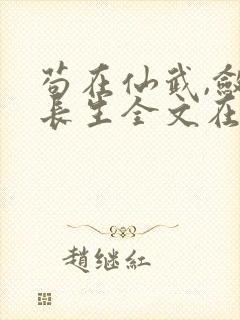 苟在仙武,
長生全文在
趙继紅